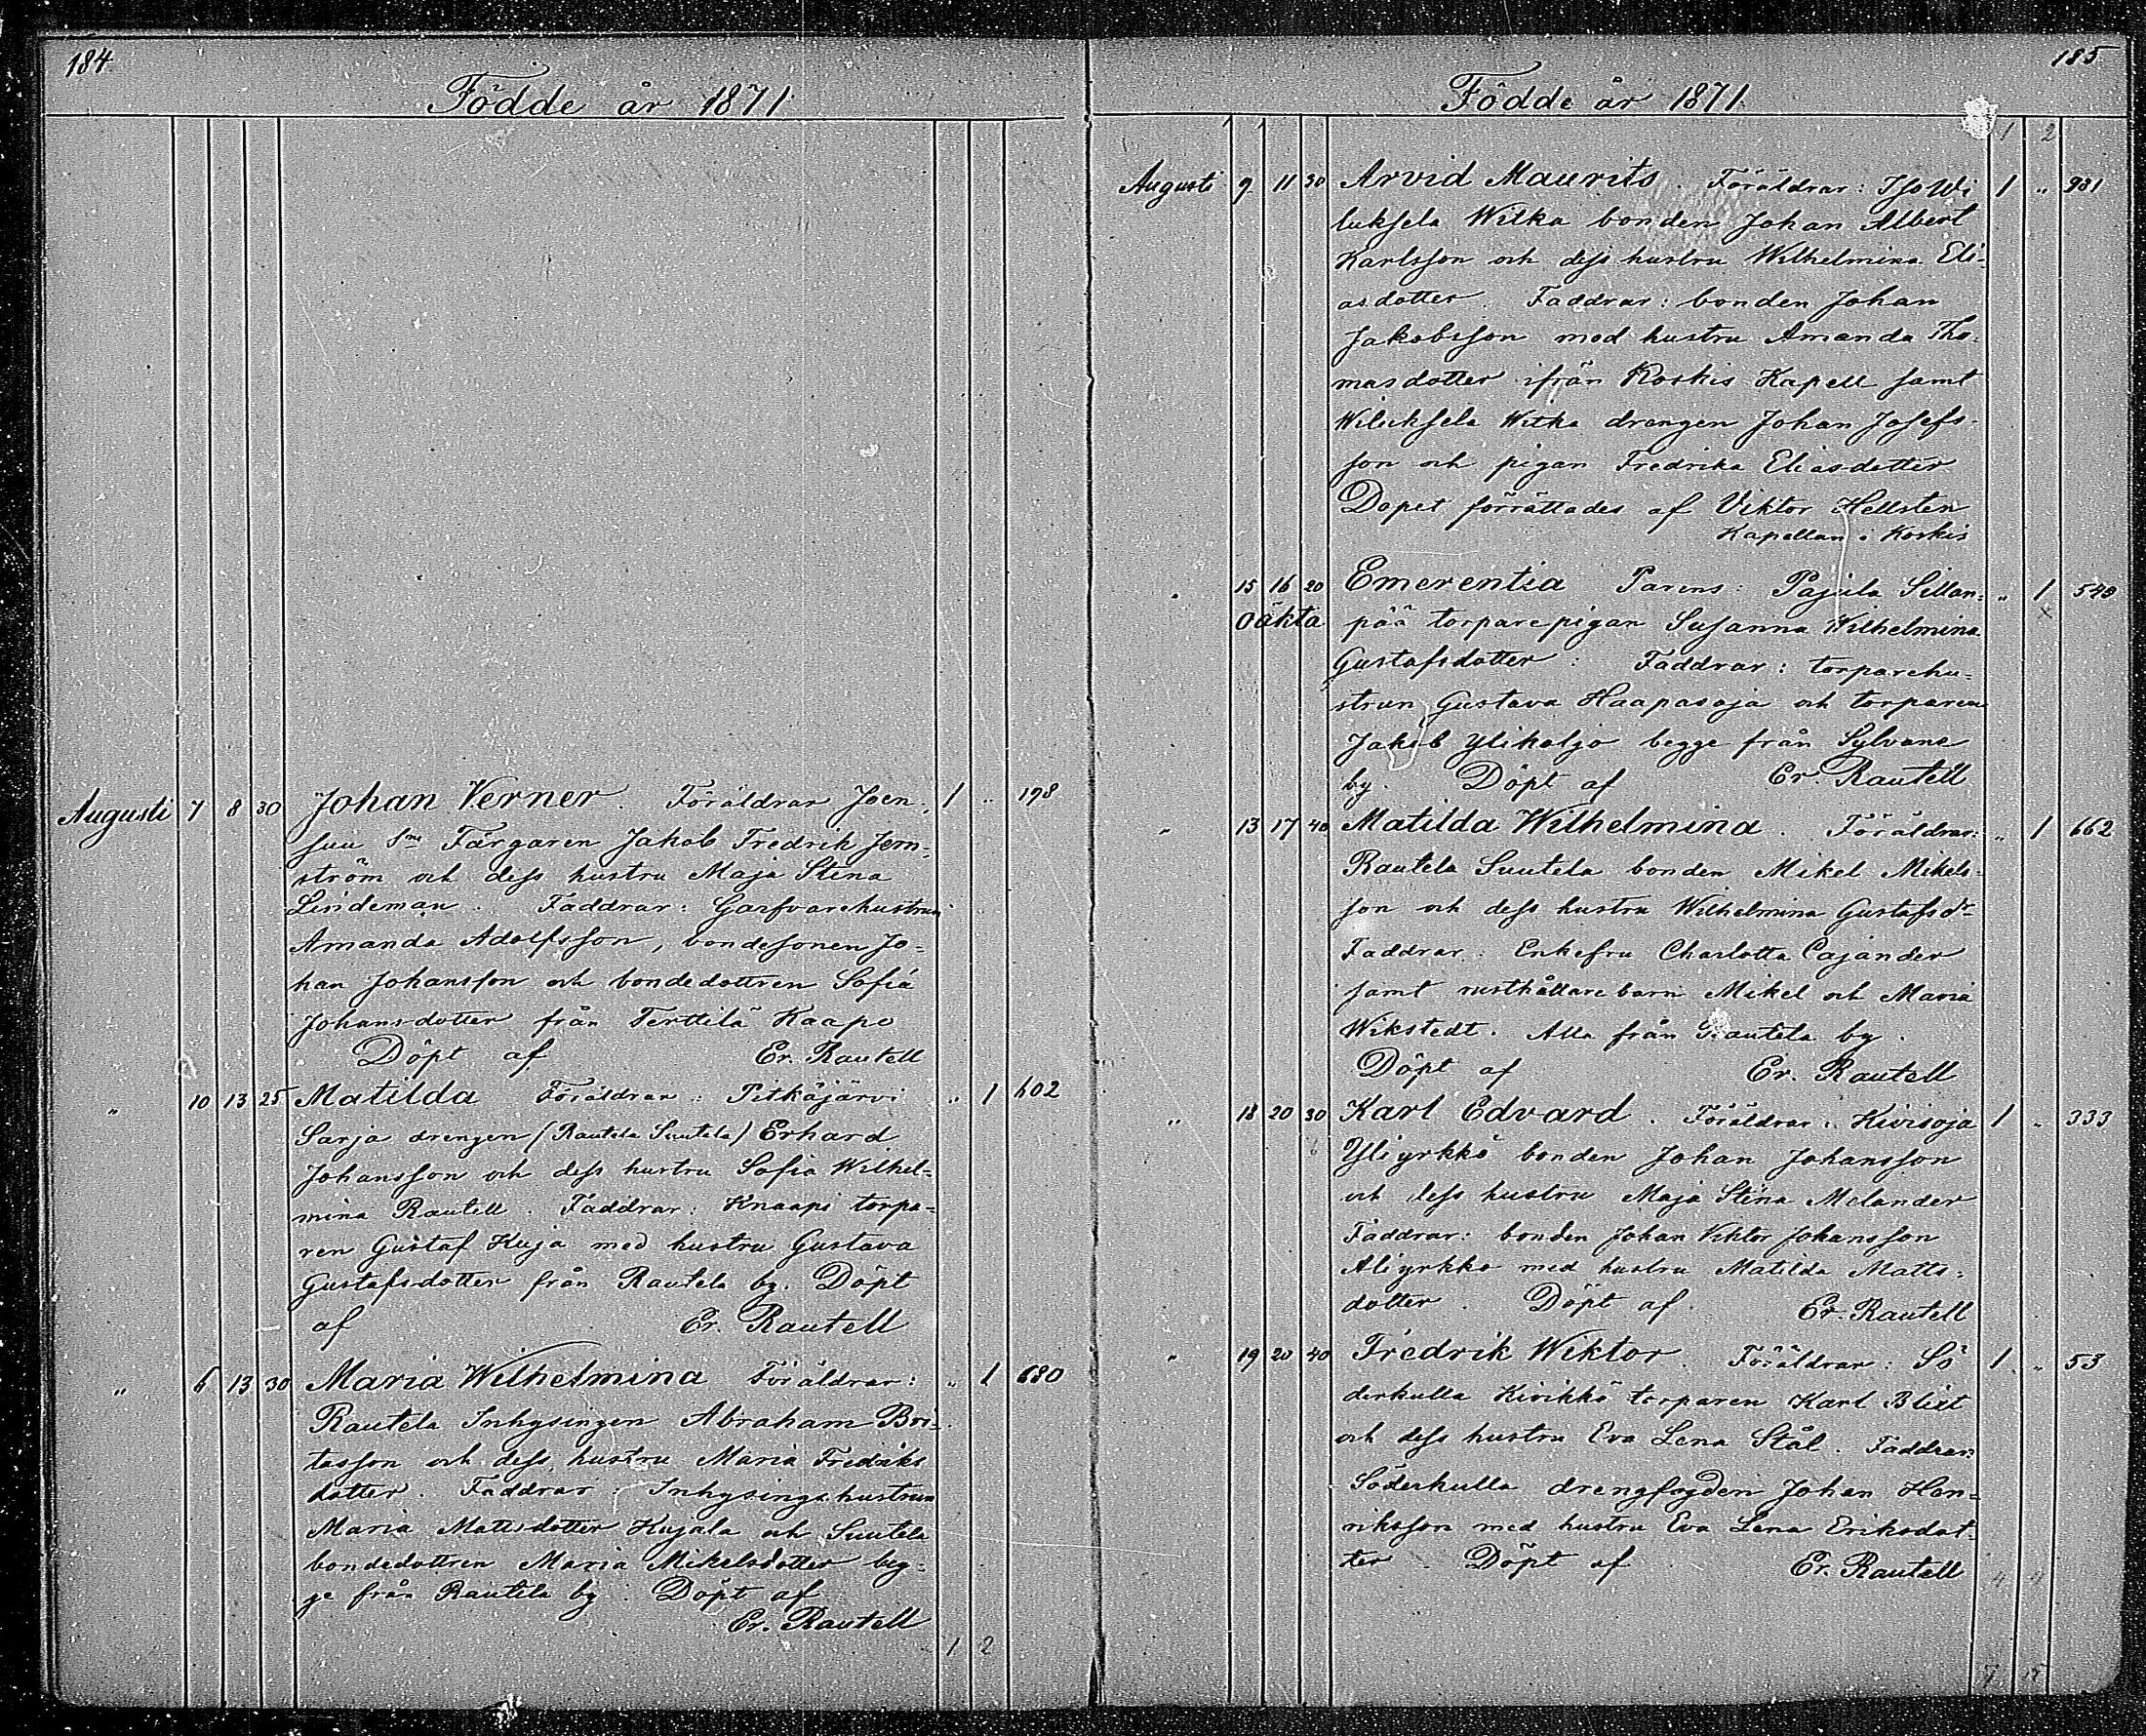 184
Födde år 1871
Augusti 7 8 30 Johan Verner. Föräldrar Joen- 1 " 198
suu Sme Färgaren Jakob Fredrik Jern-
ström och dess hustru Maja Stina
Lindeman. Faddrar: Garfvarehustrun
Amanda Adolfsson, bondesonen Jo-
han Johansson och bondedottren Sofia
Johansdotter från Terttilä Kaapo
Döpt af Er. Rautell
" 10 13 25 Matilda Föräldrar: Pitkäjärvi " 1 602
Sarja drengen (Rautela Suutela) Erhard
Johansson och dess hustru Sofia Wilhel-
mina Rautell. Faddrar: Knaapi torpa-
ren Gustaf Kuja med hustru Gustava
Gustafsdotter från Rautela by. Döpt
af Er. Rautell
" 6 13 30 Maria Wilhelmina Föräldrar: " 1 680
Rautela Inhysingen Abraham Bri-
tasson och dess hustru Maria Fredriks
dotter. Faddrar: Inhysings hustrun
Maria Mattsdotter Kujala och Suutela
bondedottren Maria Mikelsdotter beg-
ge från Rautela by. Döpt af
Er. Rautell
1 2
185
Födde år 1871
1 2
Augusti 9 11 30 Arvid Maurits. Föräldrar: Iso Wi 1 " 931
luksela Wilka bonden Johan Albert
Karlsson och dess hustru Wilhelmina Eli-
asdotter. Faddrar: bonden Johan
Jakobsson med hustru Amanda Tho-
masdotter ifrån Koskis Kapell samt
Wiluksela Wilka drengen Johan Josefs-
son och pigan Fredrika Eliasdotter
Dopet förrättades af Viktor Hellsten
Kapellan i Koskis
15 16 20 Emerentia Parens: Pajula Sillan- " 1 549
Oäkta pää torparepigan Susanna Wilhelmina x
Gustafsdotter: Faddrar: torparehu-
strun Gustava Haapasoja och torparen
Jakob Ylikaljo begge från Sylvana
by. Döpt af Er. Rautell
" 13 17 40 Matilda Wilhelmina. Föräldrar: " 1 662
Rautela Suutela bonden Mikel Mikels-
son och dess hustru Wilhelmina Gustafsdr
Faddrar: Enkefru Charlotta Cajander
samt rusthållare barn Mikel och Maria
Wikstedt. Alla från Rautela by.
Döpt af Er. Rautell
" 18 20 30 Karl Edvard. Föräldrar: Kivisoja 1 " 333
Yliyrkkö bonden Johan Johansson
och dess hustru Maja Stina Melander
Faddrar: bonden Johan Viktor Johansson
Aliyrkkö med hustru Matilda Matts-
dotter. Döpt af Er. Rautell
" 19 20 40 Fredrik Wiktor. Föräldrar: Sö 1 " 53
derkulla Kivikkö torparen Karl Blixt
och dess hustru Eva Lena Stål. Faddrar:
Söderkulla drengfogden Johan Hen-
riksson med hustru Eva Lena Eriksdot-
ter. Döpt af Er. Rautell
4 4